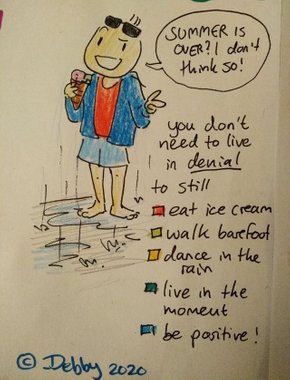 SUMMER IS
OVER?! I don't
think so!
you don't
need to live
in denial
to still
eat ice cream
walk barefoot
dance in the
rain
live in the
moment
be positive!
© Debby 2020